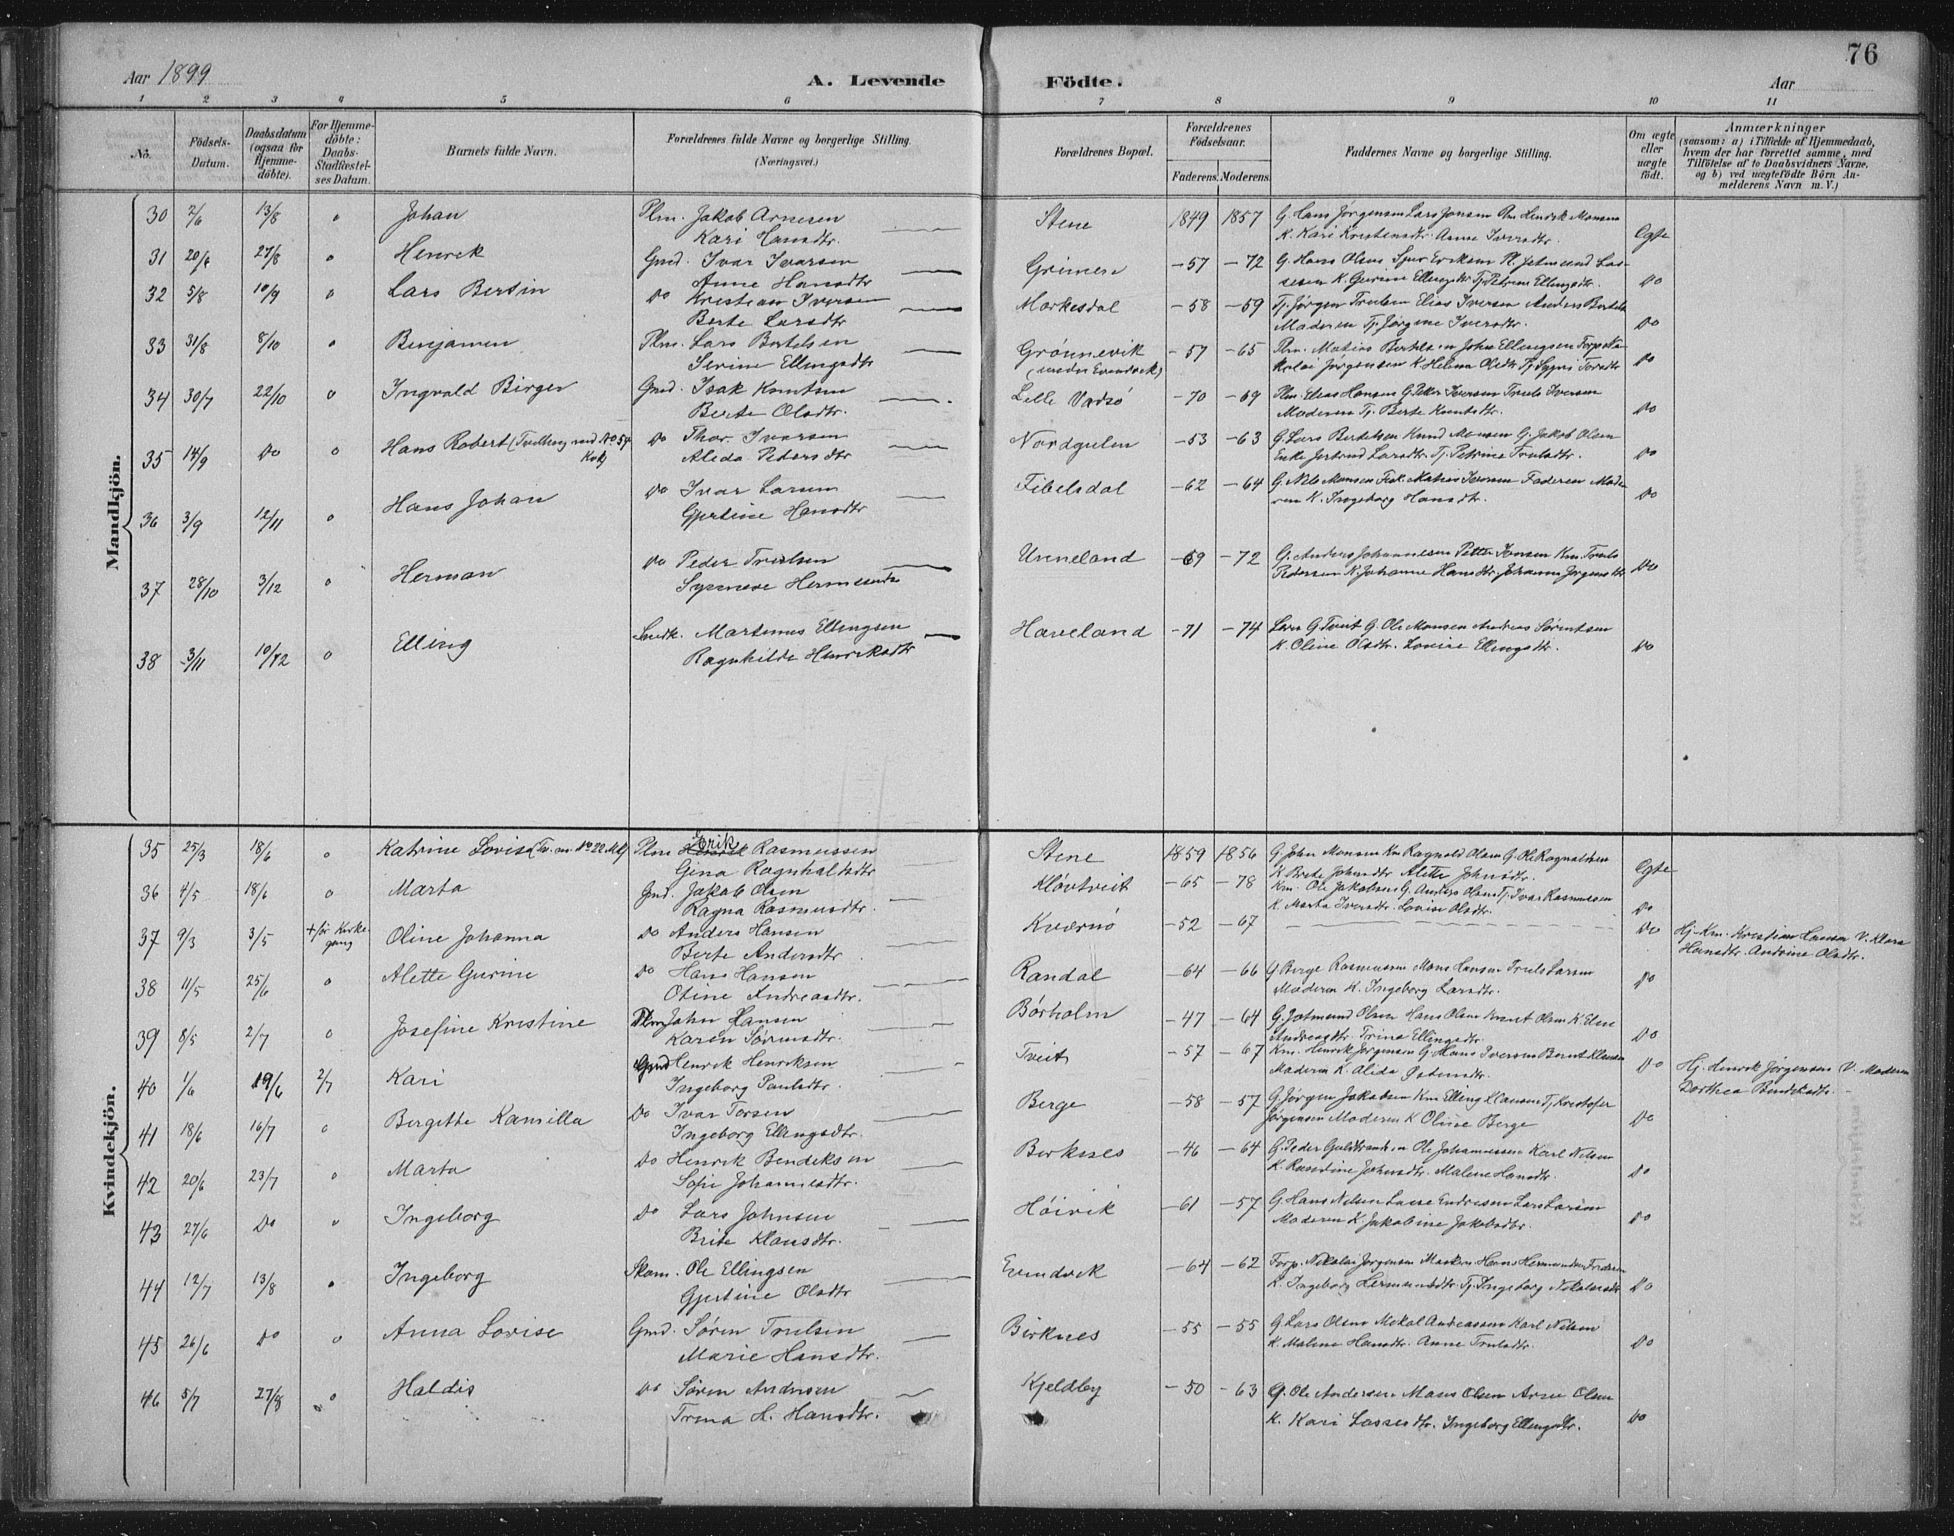 76
Aar 1899 A. Levende Födte. Aar
1 2 3 4 5 6 7 8 9 10 11
No. Födsels-Datum. Daabsdatum (ogsaa for Hjemme-döbte). For Hjemme-döbte: Daabs-Stadfæstel-ses Datum. Barnets fulde Navn. Forældrenes fulde Navne og borgerlige Stilling. (Næringsvei.) Forældrenes Bopæl. Forældrenes Födselsaar. Faderens. Moderens. Faddernes Navne og borgerlige Stilling. Om ægte eller uægte födt. Anmærkninger (saasom: a) i Tilfælde af Hjemmedaab, hvem der har forrettet samme, med Tilföielse af to Daabsvidners Navne, og b) ved uægtefödte Börn An-melderens Navn m. V.)
Mandkjön.
30 2/6 13/8 o Johan Plm. Jakob Arnesen Stene 1849 1857 G. Hans Jørgensen Lars Jonsen Plm Henrik Monsen Egte
Kari Hansdtr. K. Kari Kristensdtr. Anne Iversdtr.
31 20/6 27/8 o Henrik Gmd. Ivar Ivarsen Grimen -57 -72 G. Hans Olsen Sjur Eriksen Pl. Jetmund Las-
Anne Hansdtr sesen K. Gurine Ellingsdtr Tj. Petrine Ellingsdtr. Do
32 5/8 10/9 o Lars Bertin Do Kristian Iversen Markesdal -58 -59 Tj. Jørgen Trulsen Elias Iversen Anders Bertels
Berte Larsdtr Moderen Tj. Jørgine Iversdtr. Do
33 31/8 8/10 o Benjamin Plm. Lars Bertelsen Grønnevik -57 -65 Plm. Matias Bertelsen John Ellingsen Forp Ni-
Serine Ellingsdtr (under Evendvik) kolai Jørgensen K Helena Olsdtr Tj Synni Torsdtr Do
34 30/7 22/10 o Ingvald Birger Gmd. Isak Knutsen Lille Vadsø -70 -69 Plm. Elias Hansen G. Peter Iversen Truls Iversen
Berte Olsdtr. Moderen Tj. Berte Knutsdtr. Do
35 14/9 Do o Hans Robert (Tvilling med No 54 Kvk) Do Thor. Ivarsen Nordgulen -53 -63 G. Lars Bertelsen Knud Monsen G. Jakob Olsen
Alida Petersdtr Enke Jertrud Larsdtr. Tj. Petrine Trulsdtr. Do
36 3/9 12/11 o Hans Johan Do Ivar Larsen Fibelsdal -62 -64 G. Nils Monsen Fisk. Matias Iversen Faderen Mode
Gjertine Hansdtr ren K. Ingeborg Hansdtr. Do
37 28/10 3/12 o Herman Do Peder Trulsen Unneland -69 -72 G. Anders Johannesen Petter Jonsen Km. Truls
Synneve Hermunds Pedersen K. Johanne Hansdtr. Johanne Jørgensdtr Do
38 3/11 10/12 o Elling Martinus Ellingsen Haveland -71 -74 Lars G Tveit G. Ole Monsen Andreas Sørensen
Ragnhilda Henriksdtr K. Oline Olsdtr. Lovise Ellingsdtr. Do
Kvindekjön.
35 25/3 18/6 o Katrine Lovise (Tv. m. No 22 Mk) Plm Erik Rasmussen Stene 1859 1856 G. John Monsen Km Ragnald Olsen G. Ole Ragnaldsen Egte
Gina Ragnhaldsdtr K Brite Johnsdtr Alette Johnsdtr.
36 4/5 18/6 o Marta Gmd. Jakob Olsen Kløvtveit -65 -78 Km. Ole Jakobsen G. Anders Hans Tj. Ivar Rasmussen
Ragna Rasmusdtr. K. Marta Iversdtr. Lovise Olsdtr. Do
37 9/3 3/5 + før Kirkegang Oline Johanna Do Anders Hansen Kværnø -52 -67 Do Hj. Km. Kristian Hansen V. Klara
Berte Andersdtr Hansdtr. Andrine Olsdtr.
38 11/5 25/6 o Alette Gurine Do Hans Hansen Randal -64 -66 G Berge Rasmussen Mons Hansen Truls Larsen
Oline Andreasdtr. Moderen K. Ingeborg Larsdtr. Do
39 8/5 2/7 o Josefine Kristine Plm John Hansen Børholm -47 -64 G. Jetmund Olsen Hans Olsen Bernt Olsen K Elen
Karen Sørensdtr. Andreasdtr. Trina Ellingsdtr. Do
40 1/6 19/6 2/7 Kari Gmd Henrik Henriksen Tveit -57 -67 Km. Henrik Jørgensen G. Hans Iversen Bernt Klausen Do Hj. Henrik Jørgensen V. Moderen
Ingeborg Paulsdtr. Moderen K. Alida Østensdtr. Dorthea Bendeksdtr.
41 18/6 16/7 o Bergitte Kamilla Do Ivar Torsen Berge -58 -57 G. Jørgen Jakobsen Km Elling Klausen Tj. Kristofer
Ingeborg Ellingsdtr. Jørgensen Moderen K Oline Berge Do
42 20/6 23/7 o Marta Do Henrik Bendeksen Birknes -46 -64 G. Peder Guldbrandsen Ole Johannessen Karl Nilsen
Sofie Johannesdtr. K. Rasmine Johnsdtr. Malene Hansdtr. Do
43 27/6 Do o Ingeborg Do Lars Johnsen Høivik -61 -57 G Hans Nilsen Lasse Endresen Lars Larsen
Brite Klausdtr. Moderen K Jakobine Jakobsdtr. Do
44 12/7 13/8 o Ingeborg Skom. Ole Ellingsen Evendvik -64 -62 Forp. Nikolai Jørgensen Hans Hermundsen Faderen
Gjertine Olsdtr K. Ingeborg Hermundsdtr Tj. Ingeborg Nikolaisdtr Do
45 26/6 Do o Anna Lovise Gmd. Søren Trulsen Birknes -55 -55 G Lars Olsen Mikal Andreassen Karl Nilsen
Marie Hansdtr. K. Malene Hansdtr. Anne Trulsdtr. Do
46 5/7 27/8 o Haldis Do Søren Andersen Kjeldby -50 -63 G. Ole Andersen Mons Olsen Arne Olsen
Trina H. Hansdtr. K. Kari Lassesdtr. Ingeborg Ellingsdtr. Do